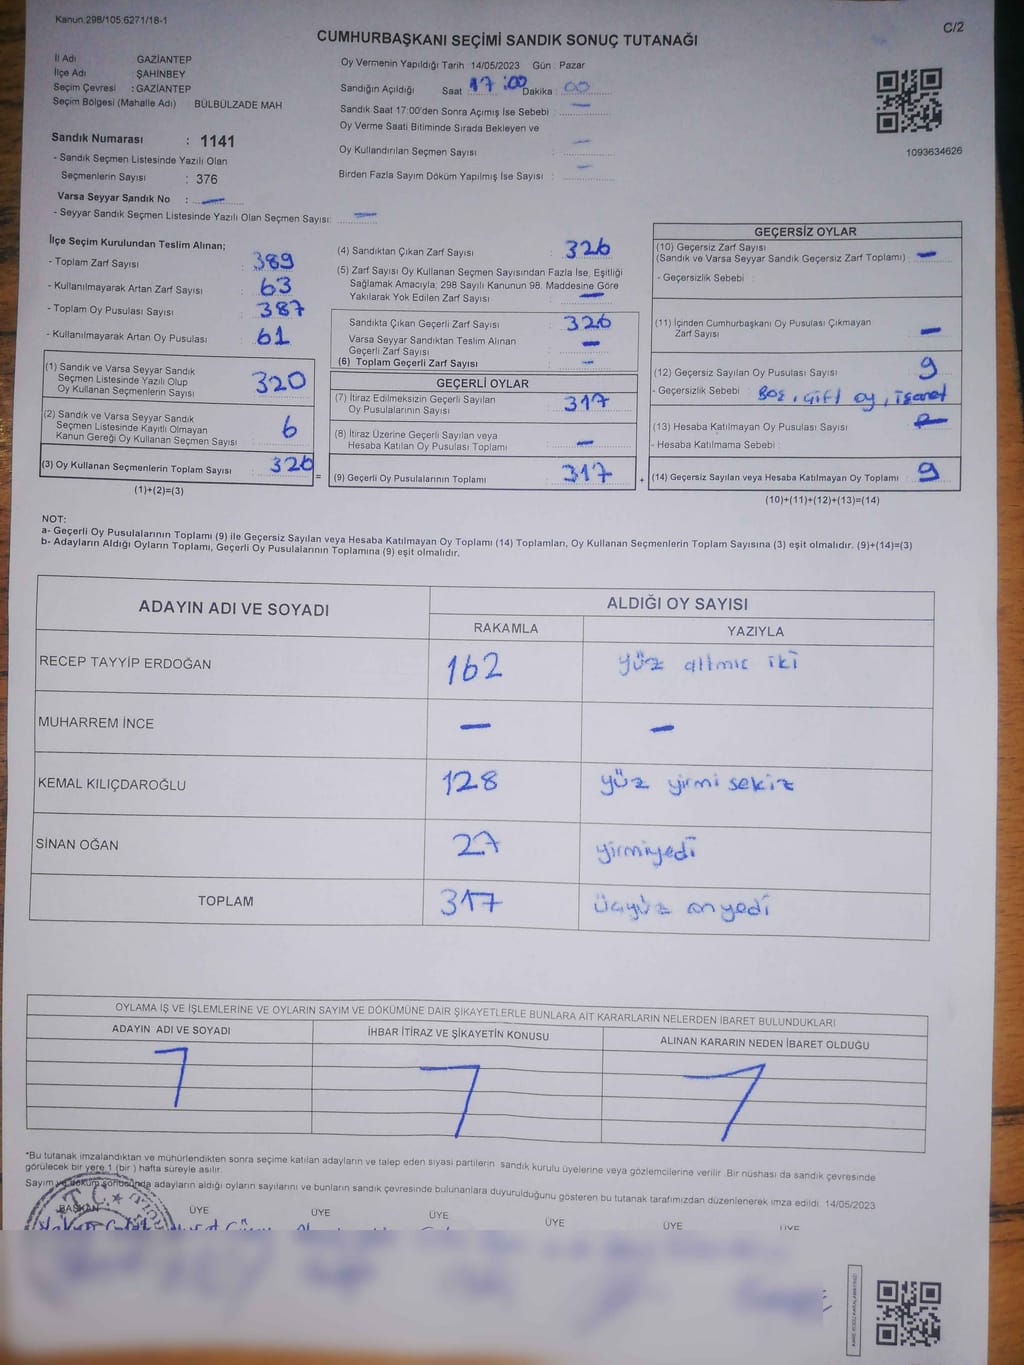 Kanun 298/105 6271/18-1
C/2
CUMHURBAŞKANI SEÇİMİ SANDIK SONUÇ TUTANAĞI
İl Adı GAZİANTEP
İlçe Adı ŞAHİNBEY
Seçim Çevresi : GAZİANTEP
Seçim Bölgesi (Mahalle Adı) : BÜLBÜLZADE MAH
Oy Vermenin Yapıldığı Tarih 14/05/2023 Gün : Pazar
Sandığın Açıldığı Saat 17:00 Dakika : 00
Sandık Saat 17:00'den Sonra Açımış İse Sebebi : —
Oy Verme Saati Bitiminde Sırada Bekleyen ve
Oy Kullandırılan Seçmen Sayısı : —
Birden Fazla Sayım Döküm Yapılmış İse Sayısı : —
1093634626
Sandık Numarası : 1141
- Sandık Seçmen Listesinde Yazılı Olan
Seçmenlerin Sayısı : 376
Varsa Seyyar Sandık No : —
- Seyyar Sandık Seçmen Listesinde Yazılı Olan Seçmen Sayısı: —
İlçe Seçim Kurulundan Teslim Alınan;
- Toplam Zarf Sayısı : 389
- Kullanılmayarak Artan Zarf Sayısı : 63
- Toplam Oy Pusulası Sayısı : 387
- Kullanılmayarak Artan Oy Pusulası : 61
(1) Sandık ve Varsa Seyyar Sandık
Seçmen Listesinde Yazılı Olup
Oy Kullanan Seçmenlerin Sayısı : 320
(2) Sandık ve Varsa Seyyar Sandık
Seçmen Listesinde Kayıtlı Olmayan
Kanun Gereği Oy Kullanan Seçmen Sayısı : 6
(3) Oy Kullanan Seçmenlerin Toplam Sayısı : 326
(1)+(2)=(3)
(4) Sandıktan Çıkan Zarf Sayısı : 326
(5) Zarf Sayısı Oy Kullanan Seçmen Sayısından Fazla İse, Eşitliği
Sağlamak Amacıyla; 298 Sayılı Kanunun 98. Maddesine Göre
Yakılarak Yok Edilen Zarf Sayısı : —
Sandıkta Çıkan Geçerli Zarf Sayısı : 326
Varsa Seyyar Sandıktan Teslim Alınan
Geçerli Zarf Sayısı : —
(6) Toplam Geçerli Zarf Sayısı : —
GEÇERLİ OYLAR
(7) İtiraz Edilmeksizin Geçerli Sayılan
Oy Pusulalarının Sayısı : 317
(8) İtiraz Üzerine Geçerli Sayılan veya
Hesaba Katılan Oy Pusulası Toplamı : —
= (9) Geçerli Oy Pusulalarının Toplamı : 317 +
GEÇERSİZ OYLAR
(10) Geçersiz Zarf Sayısı
(Sandık ve Varsa Seyyar Sandık Geçersiz Zarf Toplamı) : —
- Geçersizlik Sebebi :
(11) İçinden Cumhurbaşkanı Oy Pusulası Çıkmayan
Zarf Sayısı : —
(12) Geçersiz Sayılan Oy Pusulası Sayısı : 9
- Geçersizlik Sebebi : Boş, Çift oy, işaret
(13) Hesaba Katılmayan Oy Pusulası Sayısı : —
- Hesaba Katılmama Sebebi :
(14) Geçersiz Sayılan veya Hesaba Katılmayan Oy Toplamı : 9
(10)+(11)+(12)+(13)=(14)
NOT:
a- Geçerli Oy Pusulalarının Toplamı (9) ile Geçersiz Sayılan veya Hesaba Katılmayan Oy Toplamı (14) Toplamları, Oy Kullanan Seçmenlerin Toplam Sayısına (3) eşit olmalıdır. (9)+(14)=(3)
b- Adayların Aldığı Oyların Toplamı, Geçerli Oy Pusulalarının Toplamına (9) eşit olmalıdır.
ADAYIN ADI VE SOYADI ALDIĞI OY SAYISI
RAKAMLA YAZIYLA
RECEP TAYYİP ERDOĞAN 162 yüz altmıc iki
MUHARREM İNCE — —
KEMAL KILIÇDAROĞLU 128 yüz yirmi sekiz
SİNAN OĞAN 27 yirmiyedi
TOPLAM 317 üçyüz onyedi
OYLAMA İŞ VE İŞLEMLERİNE VE OYLARIN SAYIM VE DÖKÜMÜNE DAİR ŞİKAYETLERLE BUNLARA AİT KARARLARIN NELERDEN İBARET BULUNDUKLARI
ADAYIN ADI VE SOYADI İHBAR İTİRAZ VE ŞİKAYETİN KONUSU ALINAN KARARIN NEDEN İBARET OLDUĞU
*Bu tutanak imzalandıktan ve mühürlendikten sonra seçime katılan adayların ve talep eden siyasi partilerin sandık kurulu üyelerine veya gözlemcilerine verilir. Bir nüshası da sandık çevresinde
görülecek bir yere 1 (bir) hafta süreyle asılır.
Sayım ve döküm sonucunda adayların aldığı oyların sayılarını ve bunların sandık çevresinde bulunanlara duyurulduğunu gösteren bu tutanak tarafımızdan düzenlenerek imza edildi. 14/05/2023
BAŞKAN ÜYE ÜYE ÜYE ÜYE ÜYE ÜYE
T.C.